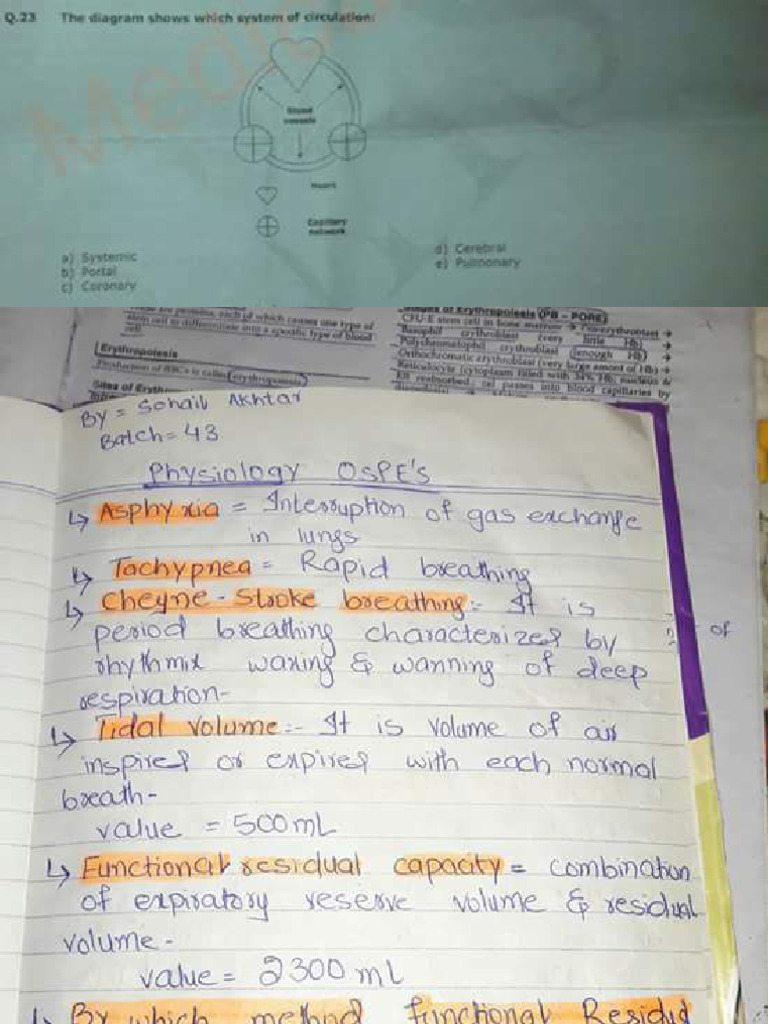 Q.23 The diagram shows which system of circulation:
Blood
vessels
Heart
Capillary
network
a) Systemic
b) Portal
c) Coronary
d) Cerebral
e) Pulmonary
each of which causes one type of
stem cell to differentiate into a specific type of blood
cell
Erythropoiesis
Production of RBCs is called erythropoiesis
Sites of Eryth
of Erythropoiesis (PB – PORE)
CFU-E stem cell in bone marrow → Proerythroblast →
Basophil erythroblast (very little Hb) →
Polychromatophil erythroblast (enough Hb) →
Orthochromatic erythroblast (very large amount of Hb) →
Reticulocyte (cytoplasm filled with 34% Hb, nucleus &
ER reabsorbed, cell passes into blood capillaries by
By = Sohail Akhtar
Batch = 43
Physiology OSPE's
↳ Asphyxia = Interruption of gas exchange
in lungs
↳ Tachypnea = Rapid breathing
↳ Cheyne-Stroke breathing:- It is
period breathing characterized by
rhythmix waxing & wanning of deep
respiration-
of
↳ Tidal volume:- It is volume of air
inspired or expired with each normal
breath-
value = 500mL
↳ Functional residual capacity = combination
of expiratory reserve volume & residual
volume-
value = 2300 mL
↳ By which method functional Residual